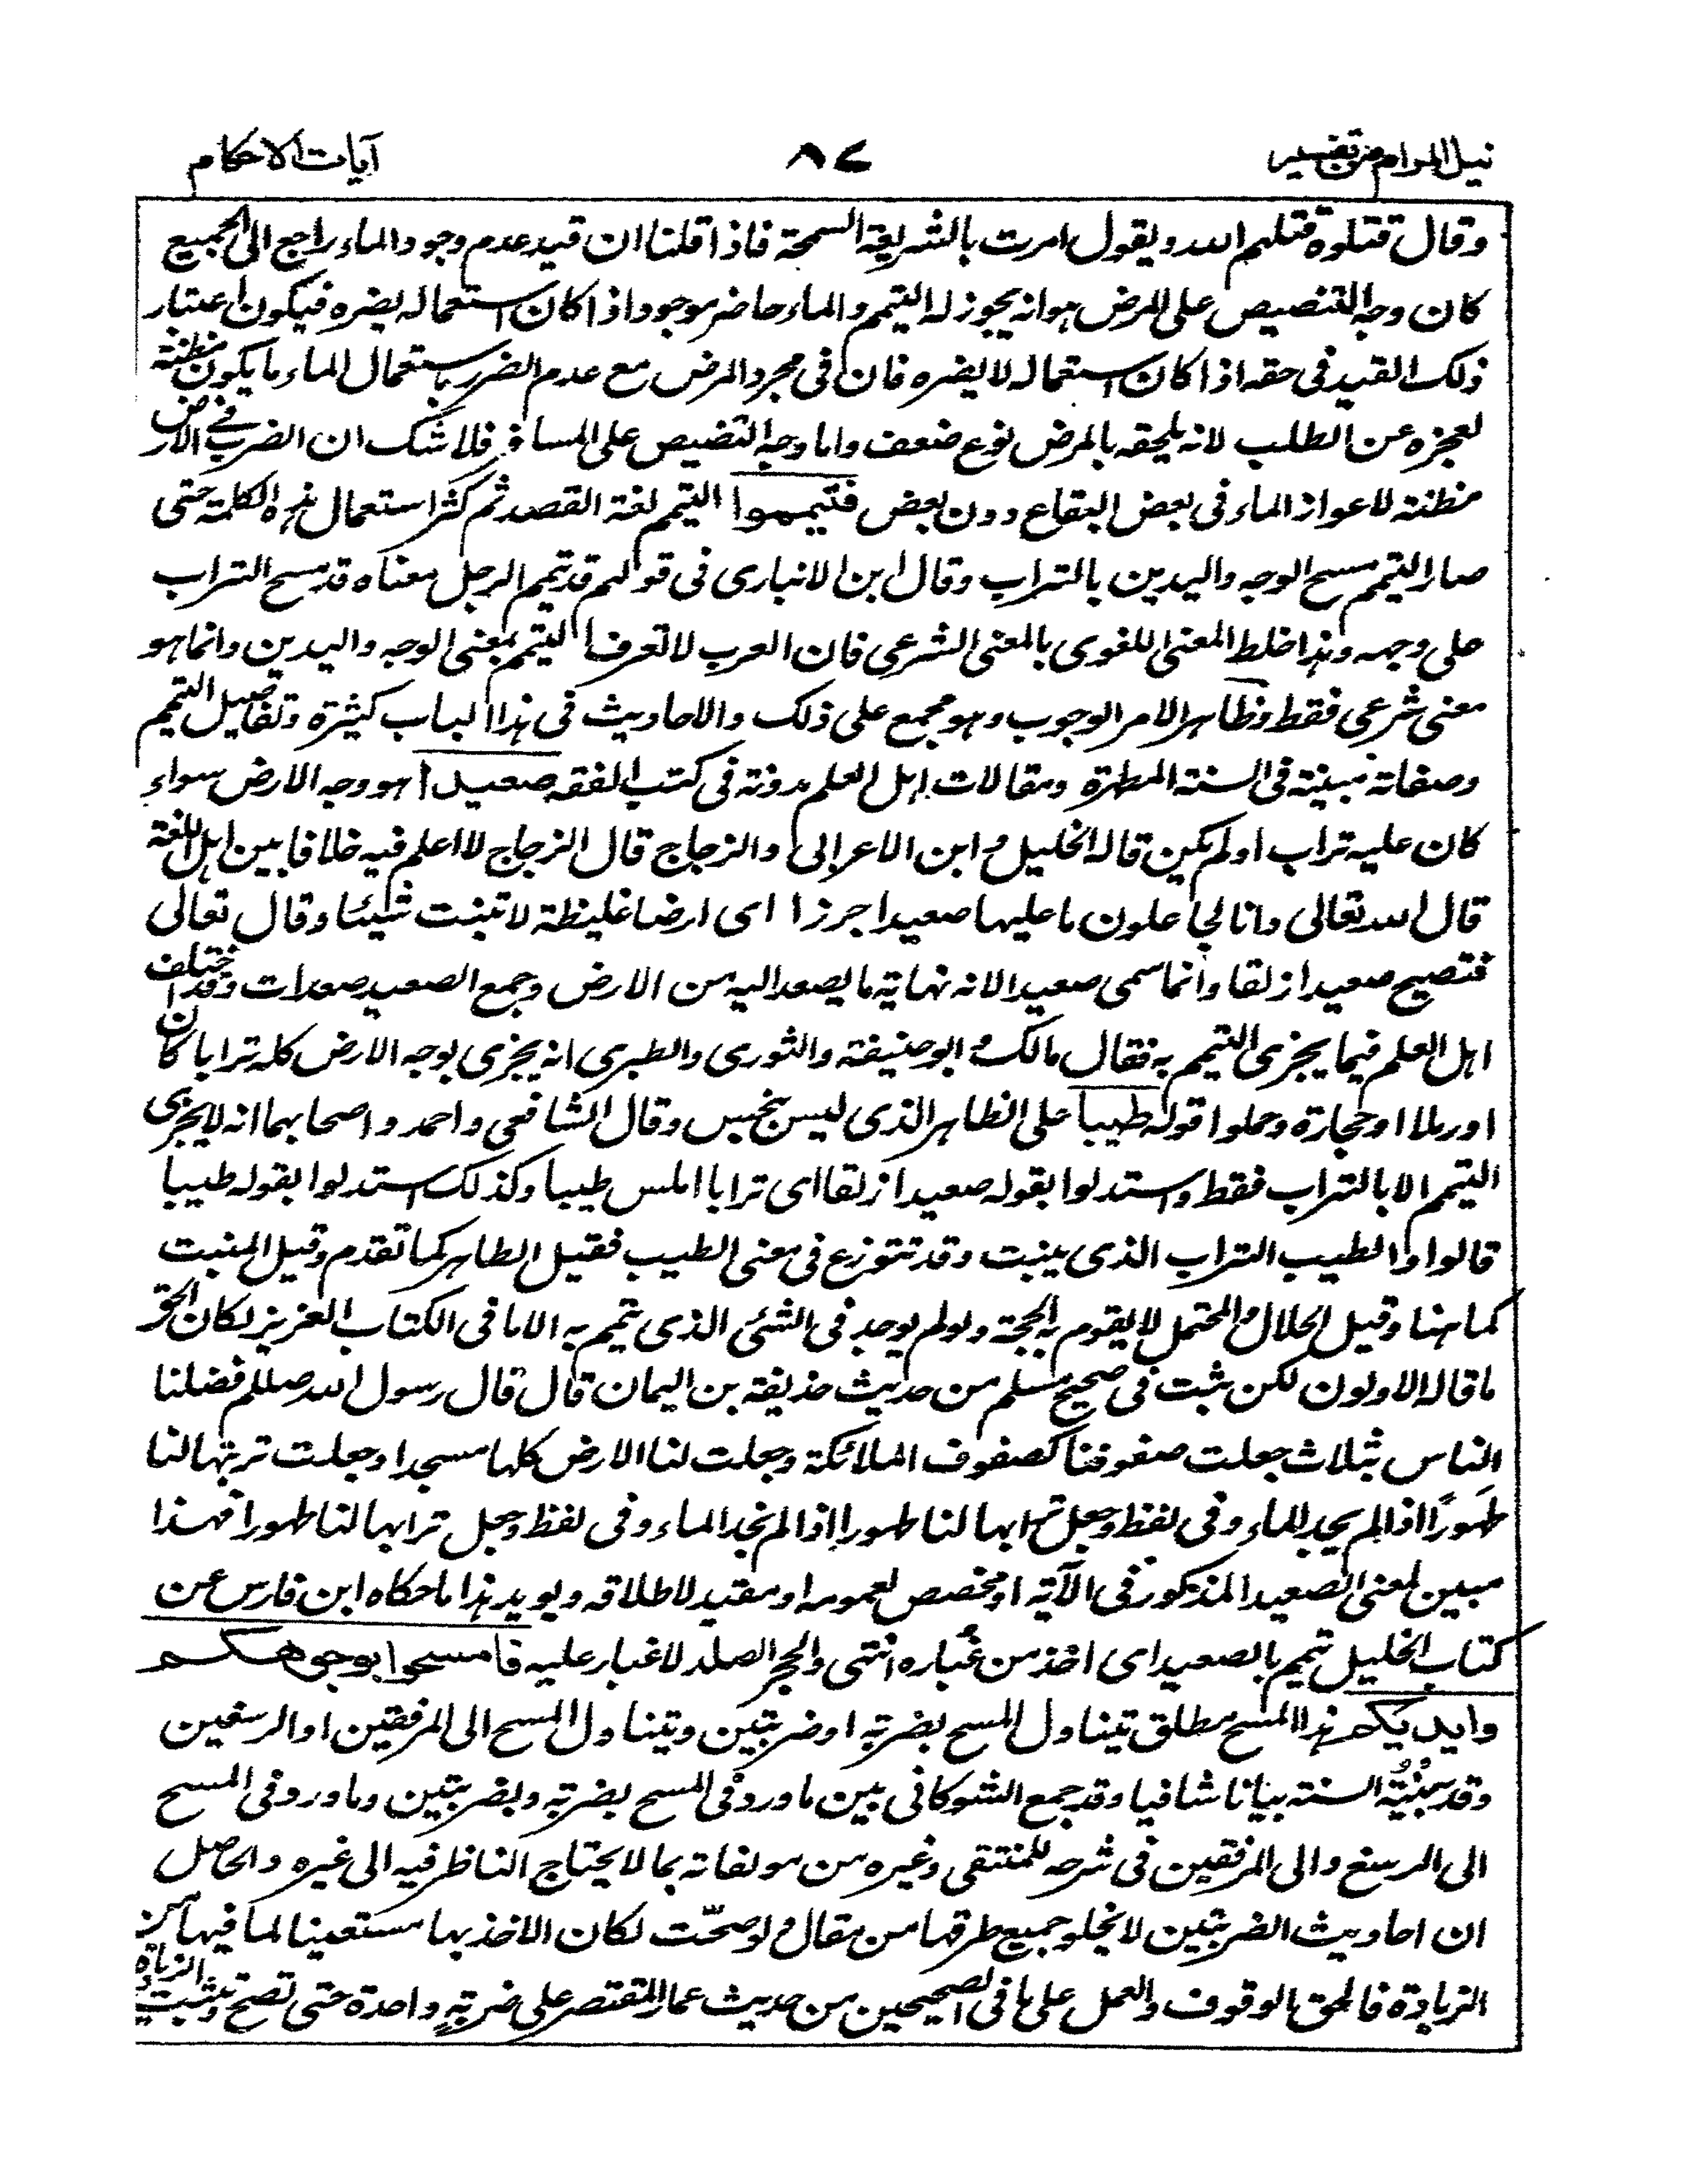 نيل المرام من تفسير
٨٢
آيات الاحكام
وقال قتلوه قتلهم الله ويقول امرت بالشريعة السمحة فاذا قلنا ان قيد عدم وجود الماء راجع الى الجميع
كان وجه التنصيص على المرض هو انه يجوز له التيمم والماء حاضر موجود اذا كان استعماله يضره فيكون اعتبار
ذلك القيد فى حقه اذا كان استعماله لا يضره فان فى مجرد المرض مع عدم الضرر باستعمال الماء ما يكون مظنة
لعجزه عن الطلب لانه يلحقه بالمرض نوع ضعف واما وجه التنصيص على المسافر فلا شك ان الضرب فى الارض
مظنة لاعواز الماء فى بعض البقاع دون بعض فتيمموا التيمم لغة القصد ثم كثر استعمال هذه الكلمة حتى
صار التيمم مسح الوجه واليدين بالتراب وقال ابن الانبارى فى قولهم قد تيمم الرجل معناه قد مسح التراب
على وجهه وهذا خلط المعنى اللغوى بالمعنى الشرعى فان العرب لا تعرف التيمم بمعنى الوجه واليدين وانما هو
معنى شرعى فقط وظاهر الامر الوجوب وهو مجمع على ذلك والاحاديث فى هذا الباب كثيرة وتفاصيل التيمم
وصفاته مبينة فى السنة المطهرة ومقالات اهل العلم مدونة فى كتب الفقه صعيدا هو وجه الارض سواء
كان عليه تراب او لم يكن قاله الخليل و ابن الاعرابى والزجاج قال الزجاج لا اعلم فيه خلافا بين اهل اللغة
قال الله تعالى وانا لجاعلون ما عليها صعيدا جرزا اى ارضا غليظة لا تنبت شيئا وقال تعالى
فتصبح صعيدا زلقا وانما سمى صعيدا لانه نهاية ما يصعد اليه من الارض وجمع الصعيد صعدات وقد اختلف
اهل العلم فيما يجزى التيمم به فقال مالك و ابو حنيفة والثورى والطبرى انه يجزى بوجه الارض كله ترابا كان
او رملا او حجارة وحملوا قوله طيبا على الطاهر الذى ليس بنجس وقال الشافعى و احمد و اصحابهما انه لا يجزى
التيمم الا بالتراب فقط واستدلوا بقوله صعيدا زلقا اى ترابا املس طيبا وكذلك استدلوا بقوله طيبا
قالوا والطيب التراب الذى ينبت وقد تنوزع فى معنى الطيب فقيل الطاهر كما تقدم وقيل المنبت
كما هنا وقيل الحلال والمحتمل لا يقوم به الحجة ولو لم يوجد فى الشئ الذى تيمم به الا ما فى الكتاب العزيز لكان الحق
ما قاله الاولون لكن ثبت فى صحيح مسلم من حديث حذيفة بن اليمان قال قال رسول الله صللم فضلنا
الناس بثلاث جعلت صفوفنا كصفوف الملائكة وجعلت لنا الارض كلها مسجدا وجعلت تربتها لنا
طهورًا اذا لم يجد الماء وفى لفظ وجعل ترابها لنا طهورا اذا لم نجد الماء وفى لفظ وجعل ترابها لنا طهورا فهذا
مبين لمعنى الصعيد المذكور فى الآية او مخصص لعمومه او مقيد لاطلاقه ويويد هذا ما حكاه ابن فارس عن
كتاب الخليل تيمم بالصعيد اى اخذ من غباره انتهى والحجر الصلد لا غبار عليه فامسحوا بوجوهكم
وايديكم هذا المسح مطلق تيناول المسح بضربة او ضربتين ويتناول المسح الى المرفقين او الرسغين
وقد بينته السنة بيانا شافيا وقد جمع الشوكانى بين ما ورد فى المسح بضربة وبضربتين وما ورد فى المسح
الى الرسغ والى المرفقين فى شرحه للمنتقى وغيره من مولفاته بما لا يحتاج الناظر فيه الى غيره والحاصل
ان احاديث الضربتين لا يخلو جميع طرقها من مقال ولو صحّت لكان الاخذ بها مستعينا لما فيها من
الزيادة فالحق الوقوف والعمل على ما فى الصحيحين من حديث عمار المقتصر على ضربةٍ واحدة حتى تصح وتثبت الزيادة